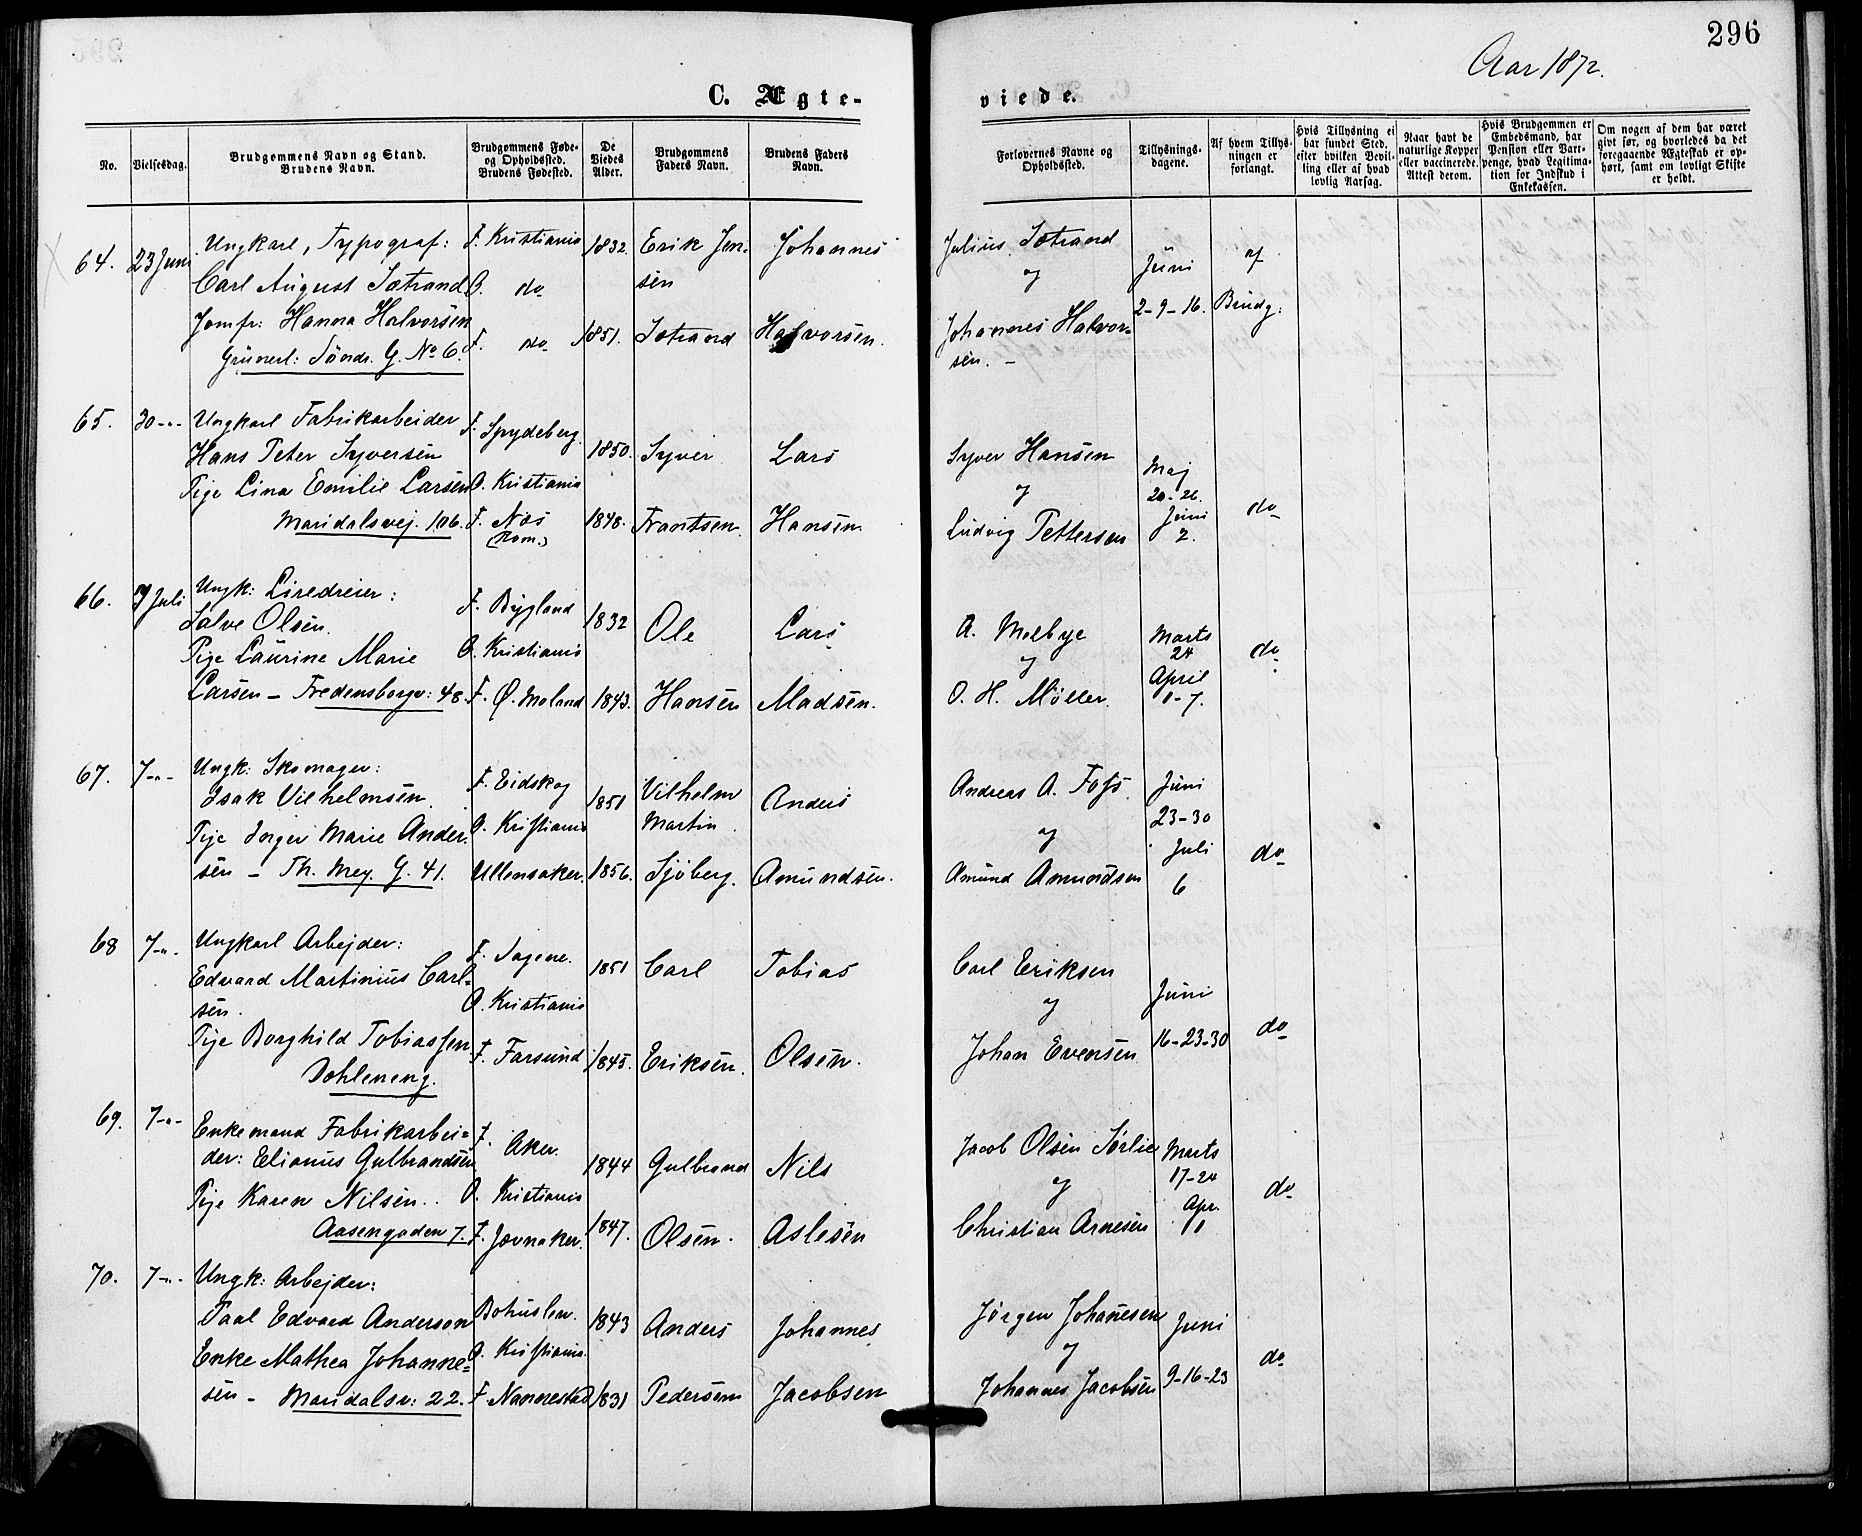 296
Aar 1872.
C. Ægte-
viede.
No.
Vielsesdag.
Brudgommens Navn og Stand.
Brudens Navn.
Brudgommens Føde-
og Opholdssted.
Brudens Fødested.
De
Viedes
Alder.
Brudgommens
Faders Navn.
Brudens Faders
Navn.
Forlovernes Navne og
Opholdssted.
Tillysnings-
dagene.
Af hvem Tillys-
ningen er
forlangt.
Hvis Tillysning ei
har fundet Sted,
efter hvilken Bevil-
ling eller af hvad
lovlig Aarsag.
Naar havt de
naturlige Kopper
eller vaccinerede.
Attest derom.
Hvis Brudgommen er
Embedsmand, har
Pension eller Vart-
penge, hvad Legitima-
tion for Indskud i
Enkekassen.
Om nogen af dem har været
givt før, og hvorledes da det
foregaaende Ægteskab er op-
hørt, samt om lovligt Skifte
er holdt.
64. 23 Juni
Ungkarl, Typograf:
Carl August Sætrand
Jomfr: Hanna Halvorsen
Grünerl: Söndr. G. No 6.
F. Kristiania
O. do
F. do
1832
1851.
Erik Jen-
sen
Sotrand
Johannes
Halvorsen.
Julius Sotrand
og
Johannes Halvor-
sen. -
Juni
2-9-16.
af
Brudg:
65. 30-"-
Ungkarl Fabrikarbeider
Hans Peter Syversen
Pige Lina Emilie Larsen
Maridalsvej. 106.
F. Spydeberg.
O. Kristiania
F. Næs
(Rom.)
1850.
1848.
Syver
Frantsen.
Lars
Hansen.
Syver Hansen
og
Ludvig Pettersen
Maj
20-26.
Juni
2.
do
66. 7 Juli
Ungk: Liredreier:
Salve Olsen.
Pige Laurine Marie
Larsen - Fredensborgv: 48.
F. Bygland
O. Kristiania
F. Ø. Moland
1832
1843.
Ole
Hansen
Lars
Madsen.
A. Melbye
og
O. H. Möller.
Marts
24
April
1-7.
do
67. 7-"-
Ungk: Skomager:
Isak Vilhelmsen.
Pige Inger Marie Ander-
sen - Th. Mey. G. 41.
F. Eidskog
O. Kristiania
Ullensaker.
1851
1856.
Vilhelm
Martin
Sjöberg.
Anders
Amundsen.
Andreas A. Foss.
og
Amund Amundsen
Juni
23-30
Juli
6
do
68 7-"-
Ungkarl Arbejder:
Edvard Martinius Carl-
sen.
Pige Borghild Tobiassen
Dohleneng.
F. Sagene.
O. Kristiania
F. Farsund
1851
1845.
Carl
Eriksen.
Tobias
Olsen.
Carl Eriksen
og
Johan Evensen
Juni
16-23-30
do
69. 7-"-
Enkemand Fabrikarbei-
der: Elianus Gulbrandsen
Pige Karen Nilsen.
Aasengaden 7.
F. Aker.
O. Kristiania
F. Jævnaker.
1844
1847.
Gulbrand
Olsen.
Nils
Aslesen
Jacob Olsen Sørlie
og
Christian Arnesen
Marts
17-24
Apr.
1
do
70. 7-"-
Ungk: Arbejder:
Paal Edvard Anderson
Enke Mathea Johanne-
sen - Maridalsv: 22.
Bohuslen.
O. Kristiania.
F. Nannestad
1843
1831
Anders
Pedersen
Johannes
Jacobsen
Jørgen Johanesen
og
Johannes Jacobsen
Juni
9-16-23
do